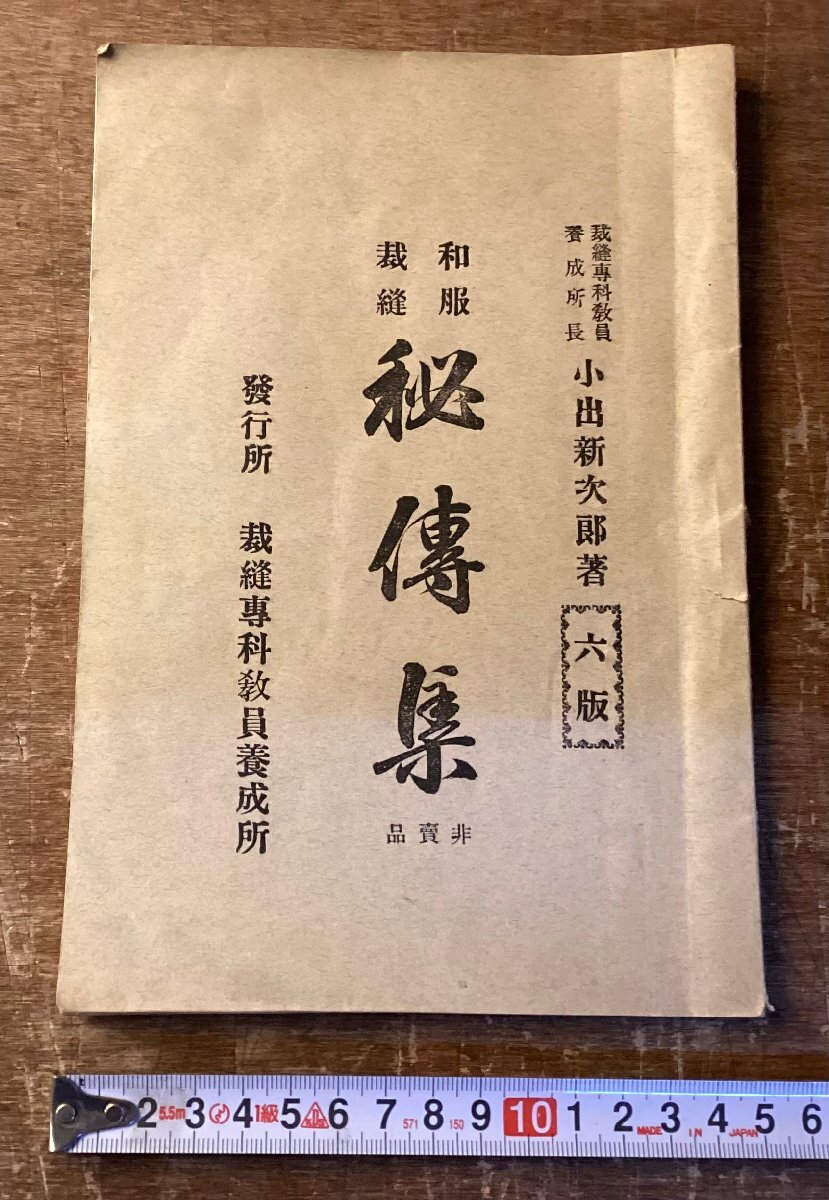 裁縫專科敎員
養成所長
小出新次郎著
六版
和服
裁縫
秘傳集
非賣品
發行所 裁縫專科敎員養成所
2 5.5m 3 4 1級 5 6 7 571 8 150 9 10 1 2 MADE 3 IN 4 JAPAN 5 6